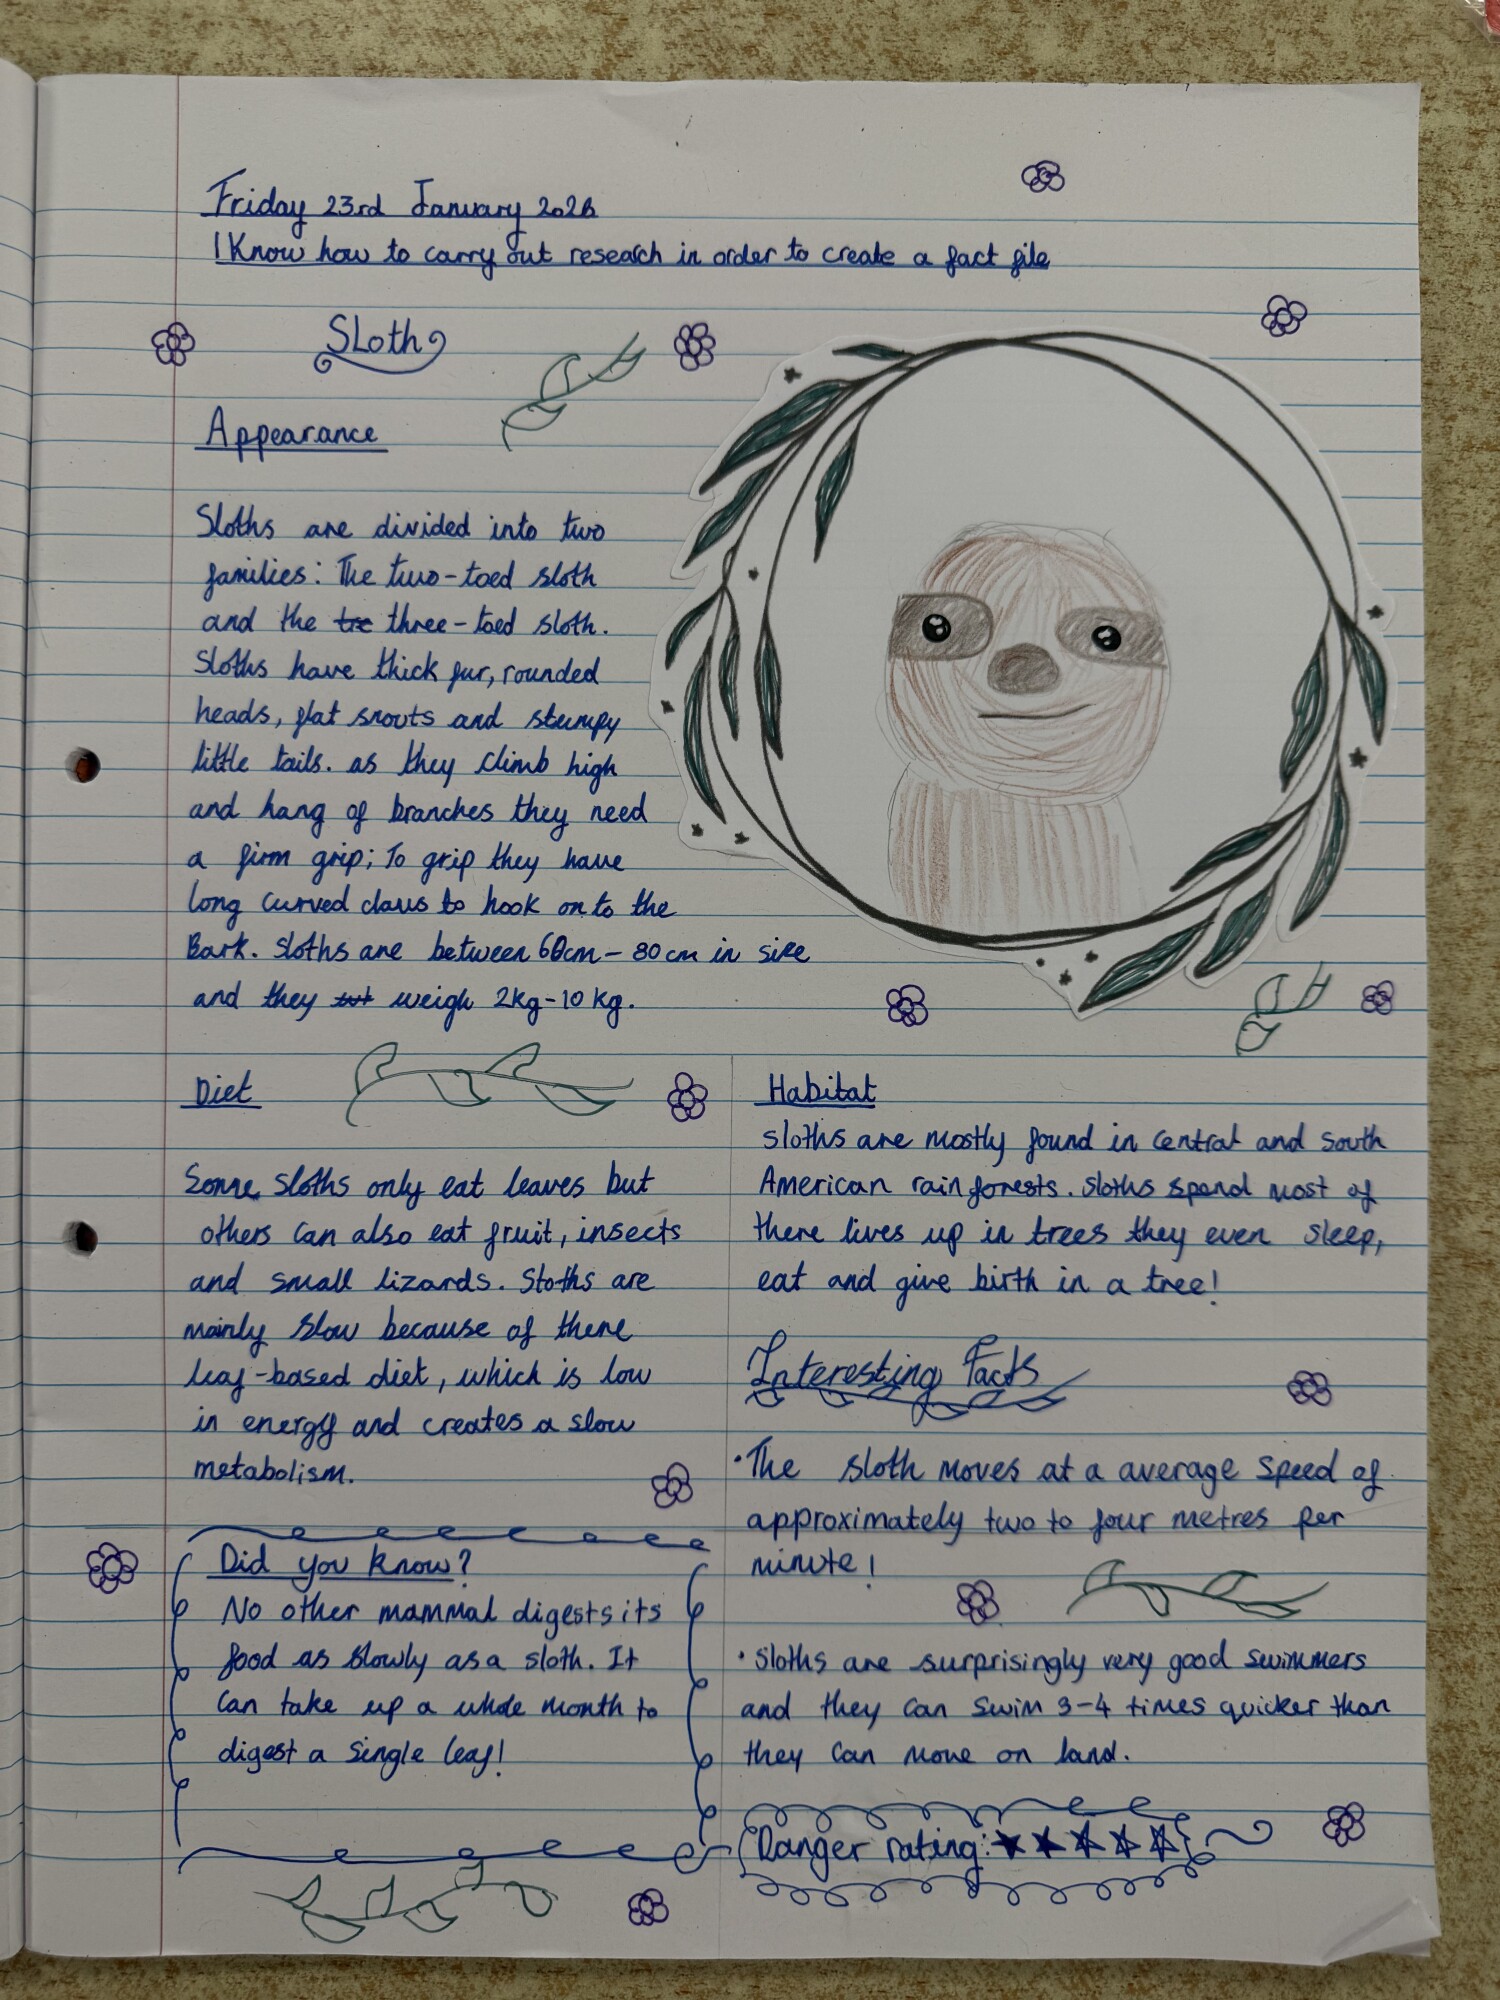 Friday 23rd January 2026
I Know how to carry out research in order to create a fact file
Sloth
Appearance
Sloths are divided into two
families: The two-toed sloth
and the tre three-toed sloth.
Sloths have thick fur, rounded
heads, flat snouts and stumpy
little tails. as they climb high
and hang of branches they need
a firm grip; To grip they have
long curved claws to hook on to the
Bark. Sloths are between 60cm - 80cm in size
and they weigh 2kg-10kg.
Diet
Some Sloths only eat leaves but
others can also eat fruit, insects
and small lizards. Sloths are
mainly slow because of there
leaf-based diet, which is low
in energy and creates a slow
metabolism.
Did you know?
No other mammal digests its
food as slowly as a sloth. It
can take up a whole month to
digest a single leaf!
Habitat
Sloths are mostly found in central and south
American rainforests. Sloths spend most of
there lives up in trees they even sleep,
eat and give birth in a tree!
Interesting Facts
• The sloth moves at a average speed of
approximately two to four metres per
minute!
• Sloths are surprisingly very good swimmers
and they can swim 3-4 times quicker than
they can move on land.
Danger rating: ★★☆☆☆